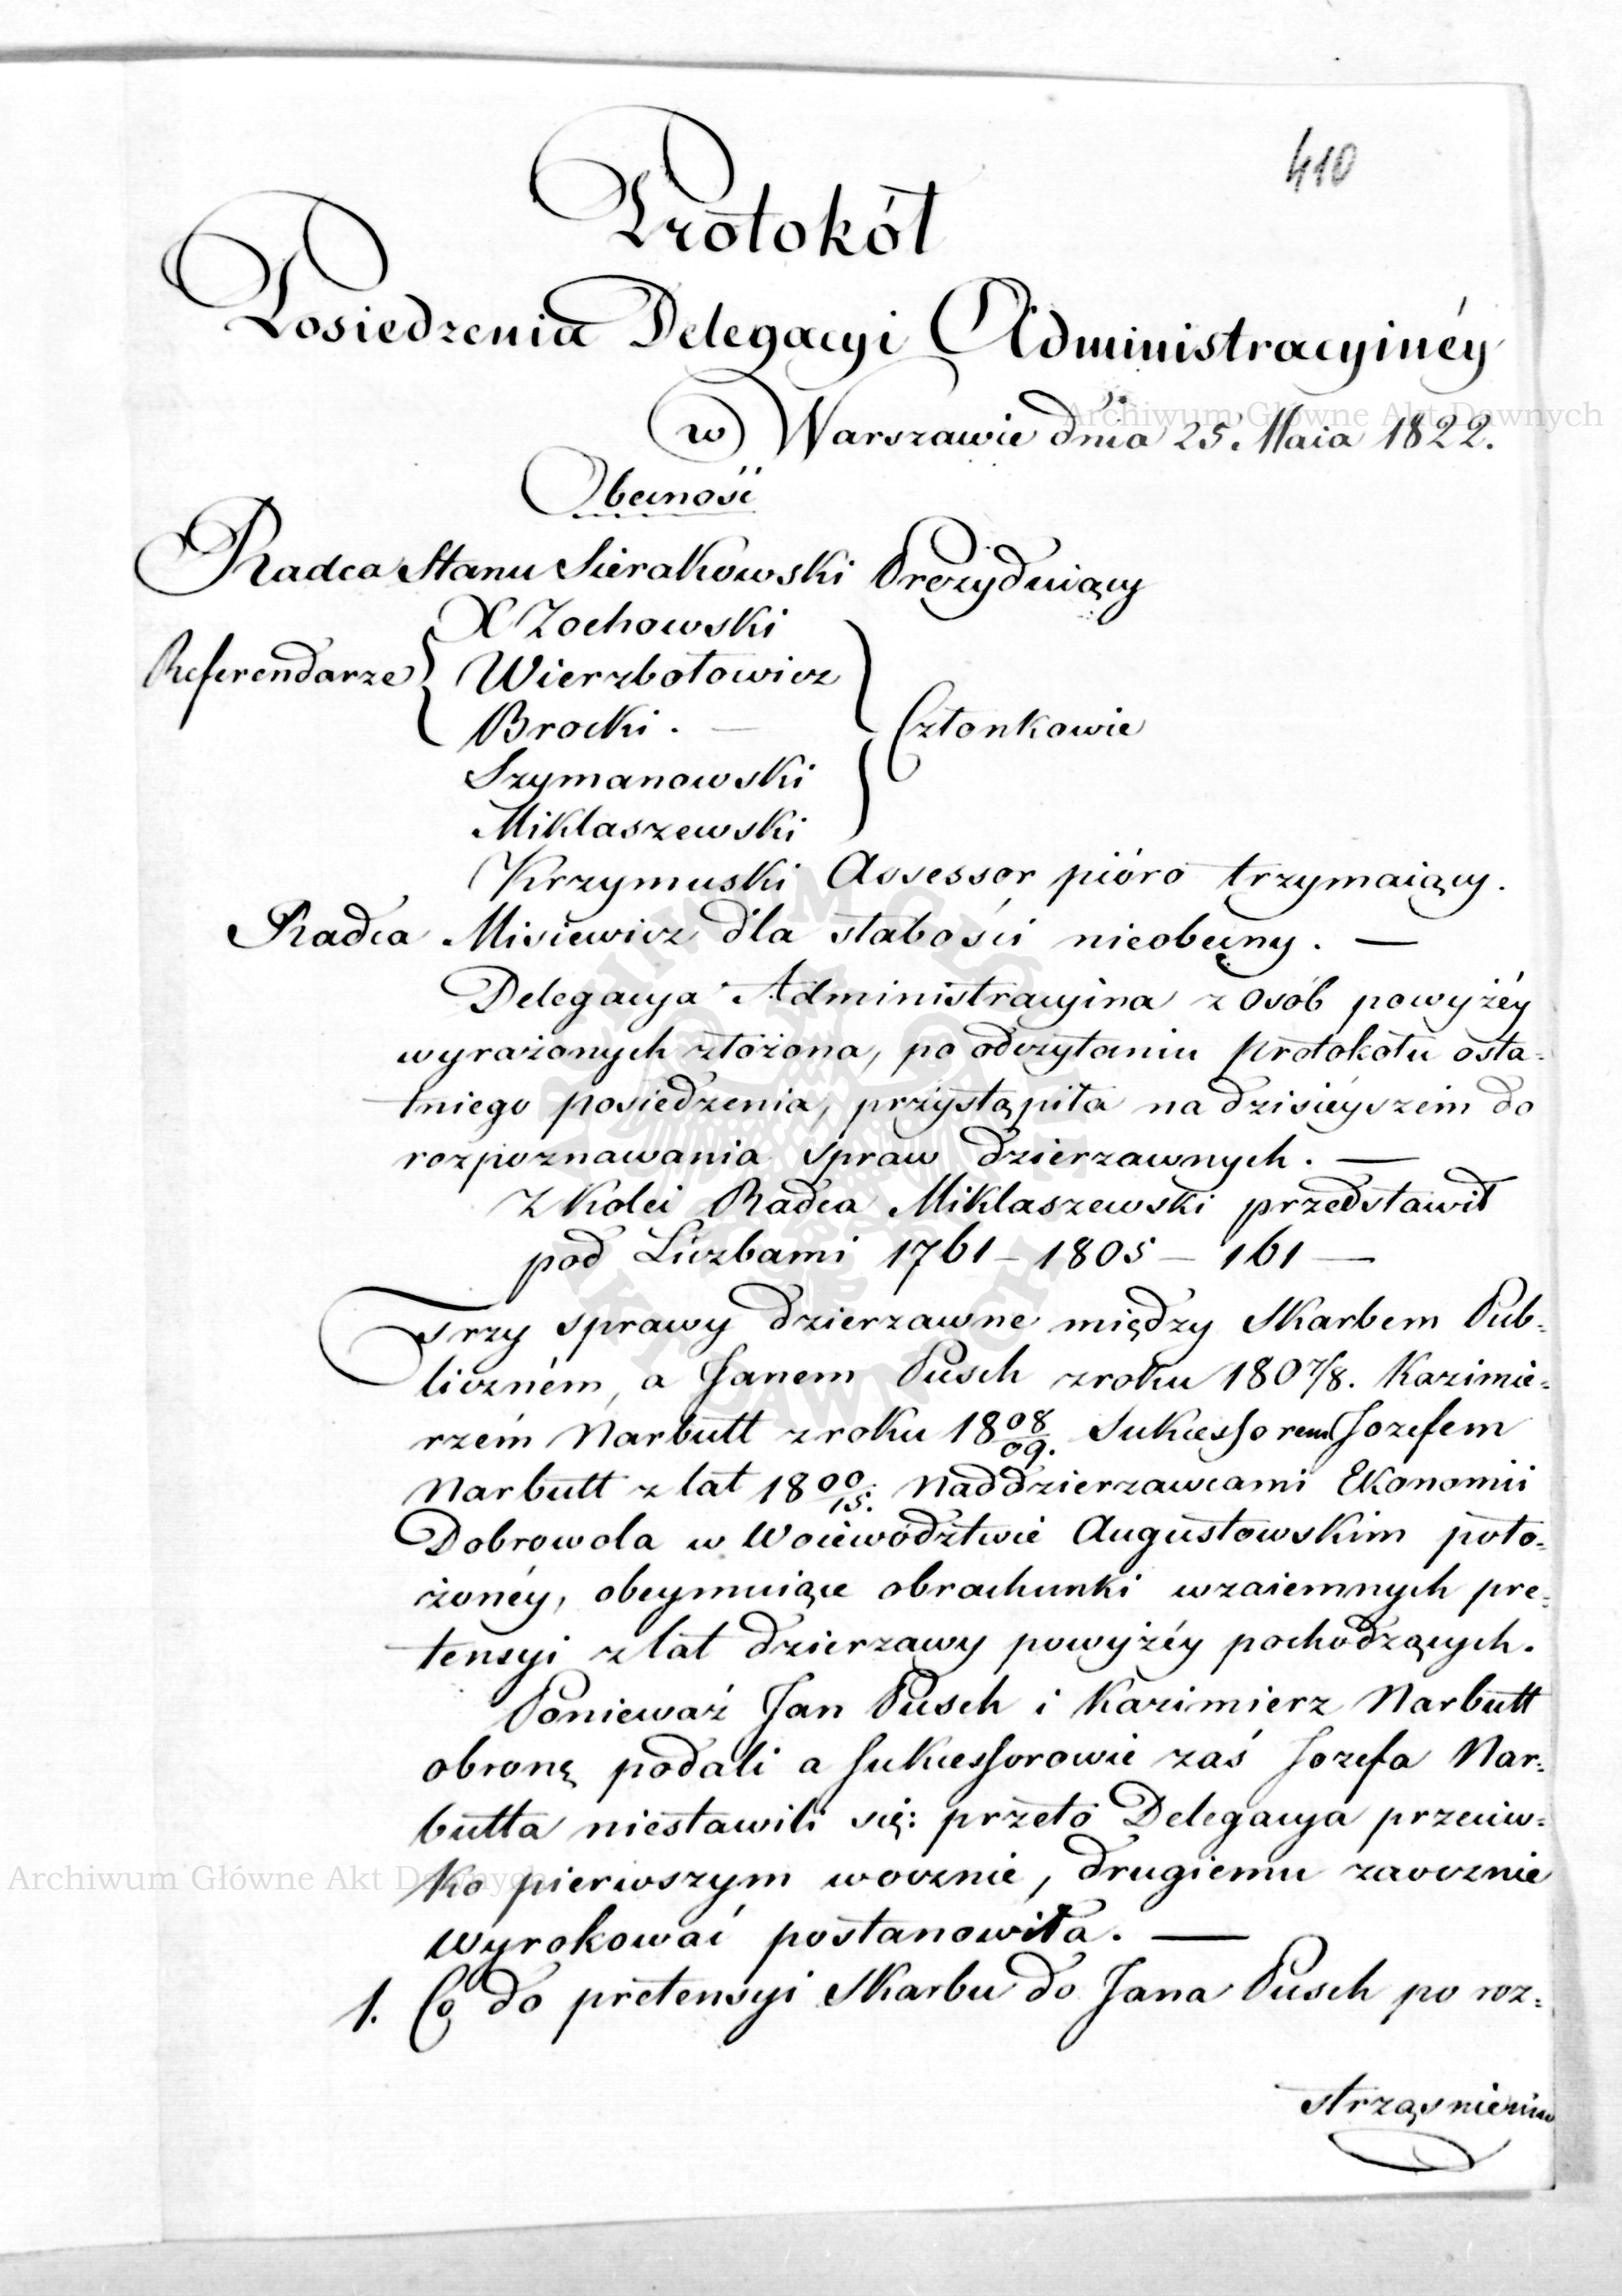 410
Protokół
Posiedzenia Delegacyi Administracyinéy
w Warszawie dnia 25. Maia 1822.
Obecność
Radca Stanu Sierakowski Prezyduiący
X Zochowski
Referendarze Wierzbołowicz
Brocki. —
Członkowie
Szymanowski
Miklaszewski
Krzymuski Assessor pióro trzymaiący.
Radca Misiewicz dla słabości nieobecny. —
Delegacya Administracyina z osób powyżéy
wyrażonych złożona, po odczytaniu Protokołu osta-
tniego posiedzenia, przystąpiła na dzisieyszém do
rozpoznawania spraw dzierzawnych. —
Z Kolei Radca Miklaszewski przedstawił
pod Liczbami 1761 — 1805 — 161 —
Trzy sprawy dzierzawne między Skarbem Pub-
liczném, a Janem Pusch z roku 1807/8. Kazimie-
rzém Narbutt z roku 1808/09. Sukcessorem Jozefem
Narbutt z lat 1809/15. Naddzierzawcami Ekonomii
Dobrowola w Woiewództwie Augustowskim poło-
żonéy, obeymuiące obrachunki wzaiemnych pre-
tensyi z lat dzierzawy powyżéy pochodzących.
Ponieważ Jan Pusch i Kazimierz Narbutt
obronę podali a sukcessorowie zaś Jozefa Nar-
butta niestawili się: przeto Delegacya przeciw-
ko pierwszym wocznie, drugiemu zaocznie
wyrokować postanowiła. —
1. Co do pretensyi Skarbu do Jana Pusch po roz-
strząśnieniu
Archiwum Główne Akt Dawnych
Archiwum Główne Akt Dawnych
ARCHIWUM GŁÓWNE AKT DAWNYCH